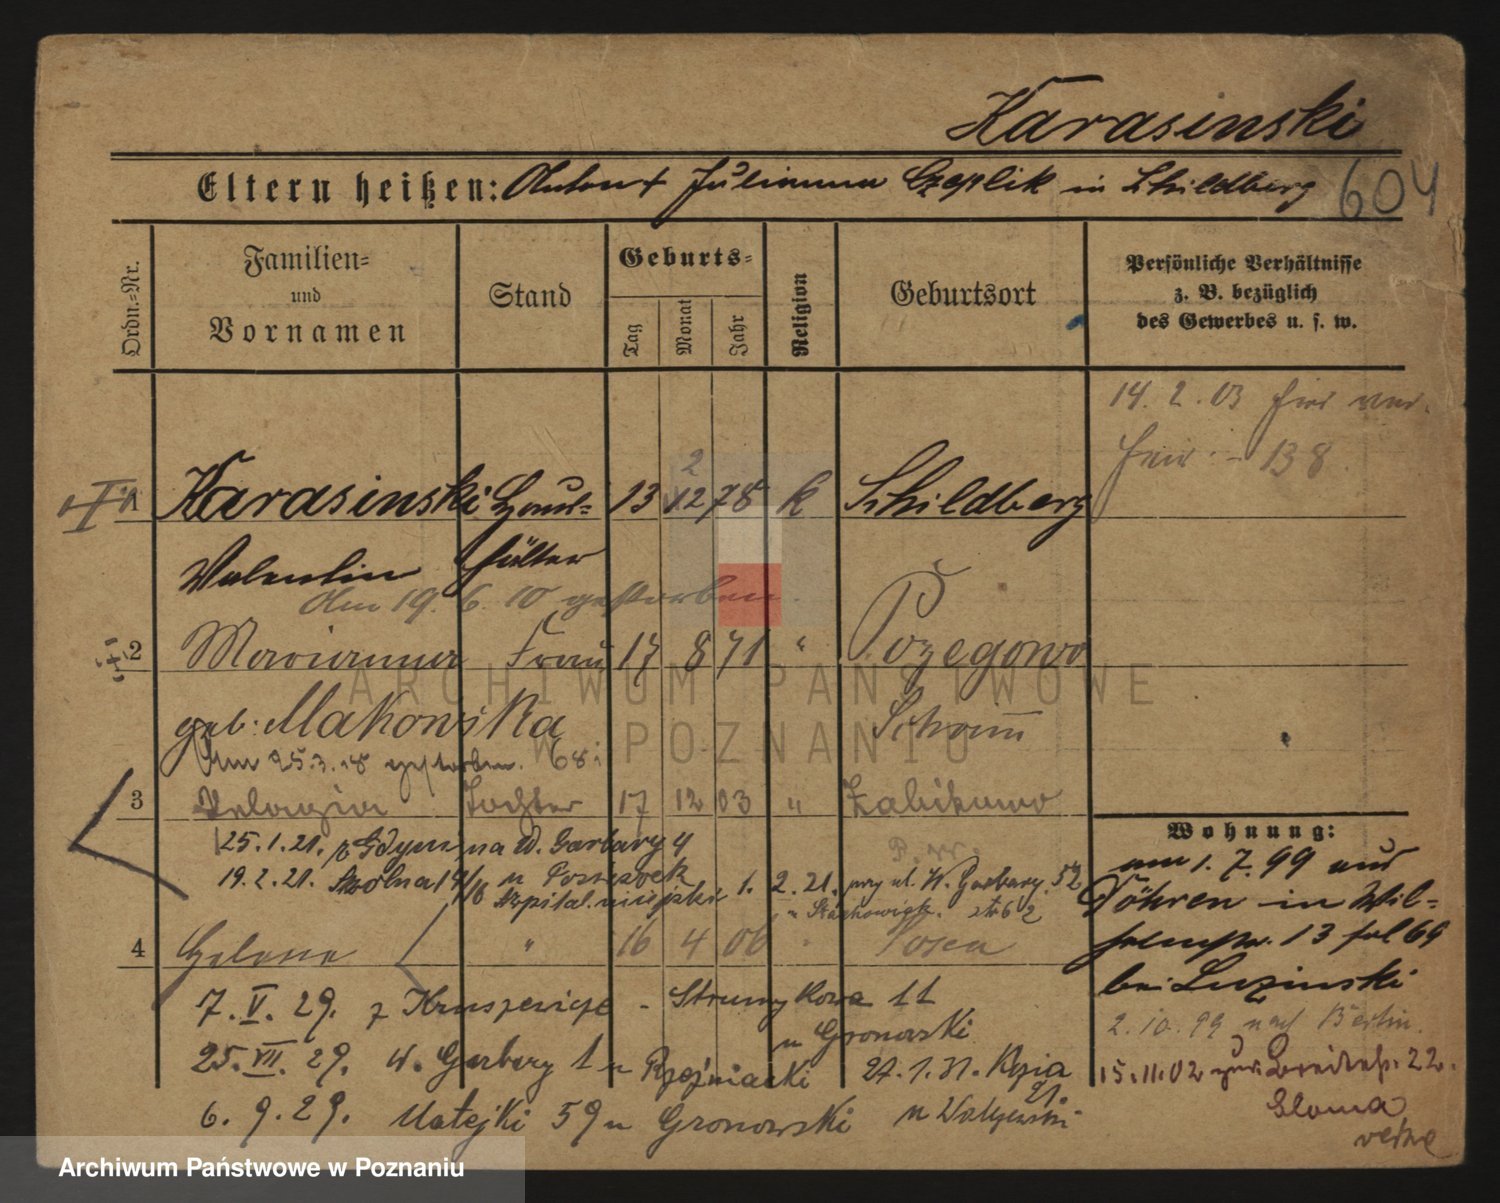 Karasinski
Eltern heißen: Anton + Julianna Czeplik in Schildberg 604
Ordn.-Nr.
Familien- und Vornamen
Stand
Geburts-
Tag Monat Jahr
Religion
Geburtsort
Persönliche Verhältnisse
z. B. bezüglich
des Gewerbes u. s. w.
14. 2. 03
138
2
1 Karasinski Haus- 13 12 78 k Schildberg
Valentin hälter
Am 19. 6. 10 gestorben.
2 Marianna Frau 17 8 71 " Pozegowo
geb. Makowska Schrimm
Am 25.3.18 gestorben. 68
3 Pelagia Tochter 17 12 03 " Zabikowo
25.1.21. z Gdyni na W. Garbary 4
19.2.21. Szkolna
Szpital. miejski 1. 2. 21. przy ul. W. Garbary 52
4 Helene " 16 4 06 " Posen
7. V. 29. z Kruszwicy - Strumykowa 11
u Gronowski
25. VII. 29. W. Garbary 1 u
6. 9. 29. Matejki 59 u Gronowski
27. 1. 31.
Wohnung:
am 1. 7. 99 aus
Föhren in Wil-
helmstr. 13 fol 69
bei Luzinski
2. 10. 99 nach Berlin.
15. 11. 02 zur. Breitestr. 22.
ARCHIWUM PAŃSTWOWE
W POZNANIU
Archiwum Państwowe w Poznaniu